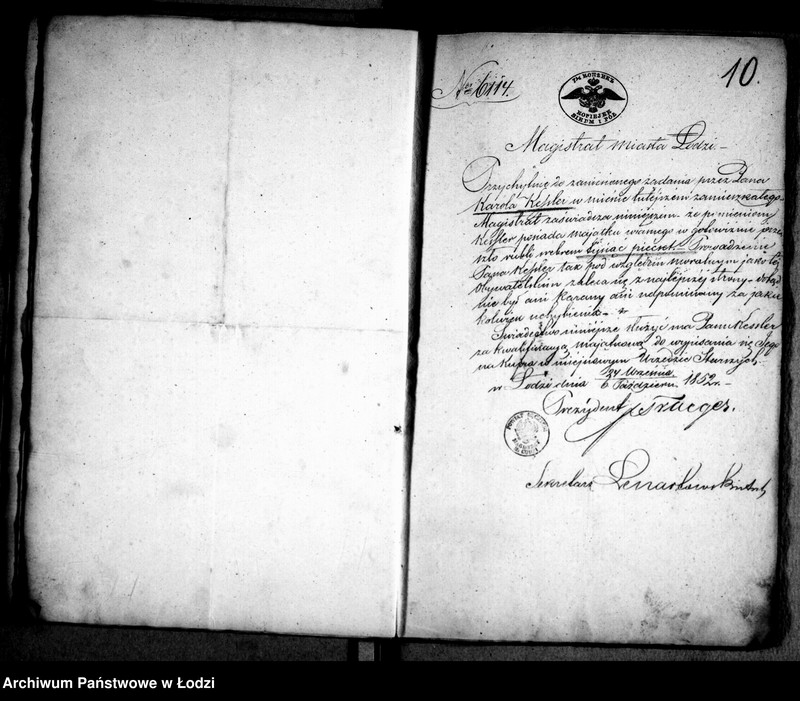 10.
No 6114.
7½ КОПѢЕКЪ
KOPIEJEK
Magistrat miasta Łodzi.–
Przychylnie do zaniesionego żądania przez Pana
Karola Kessler w mieście tutejszem zamieszkałego–
Magistrat zaświadcza niniejszem że pomieniony
Kessler posiada majątku własnego w gotowiźnie prze-
szło rubli srebrem tysiąc pięćset.– Prowadzenie
Pana Kessler tak pod względem moralnym jako też
Obywatelskim zaleca się z najlepszej strony– dotąd
nie był ani karany ani napominany za jakie
kolwiek uchybienie.–
Świadectwo niniejsze służyć ma Panu Kessler
za kwalifikacyą majątkową do wypisania się Jego
na Kupca w miejscowym Urzędzie Starszych
w Łodzi dnia 24 Września / 6 Październ. 1852 r.–
Prezydent Traeger.
Sekretarz
Archiwum Państwowe w Łodzi